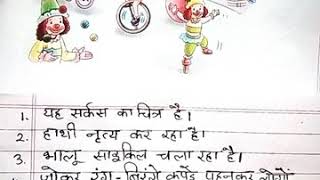 1. यह सर्कस का चित्र है।
2. हाथी नृत्य कर रहा है।
3. भालू साइकिल चला रहा है।
जोकर रंग-बिरंगे कपड़े पहनकर लोगों